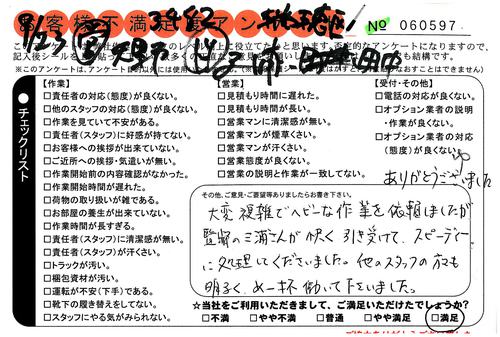 お客様不満足度アンケート
№ 060597
●チェックリスト
【作業】
□責任者の対応(態度)が良くない。
□他のスタッフの対応(態度)が良くない。
□作業を見ていて不安がある。
□責任者(スタッフ)に好感が持てない。
□お客様への挨拶が出来ていない。
□ご近所への挨拶・気遣いが無い。
□作業開始前の内容確認がなかった。
□作業開始時間が遅れた。
□荷物の取り扱いが雑である。
□お部屋の養生が出来ていない。
□作業時間が長すぎる。
□責任者(スタッフ)に清潔感が無い。
□責任者(スタッフ)が汗くさい。
□トラックが汚い。
□梱包資材が汚い。
□運転が不安(下手)である。
□靴下の履き替えをしてない。
□スタッフにやる気がみられない。
【営業】
□見積もり時間に遅れた。
□見積もり時間が長い。
□営業マンに清潔感が無い。
□営業マンが煙草くさい。
□営業マンが汗くさい。
□営業態度が良くない。
□営業の説明と作業が一致してない。
【受付・その他】
□電話の対応が良くない。
□オプション業者の説明・作業が良くない。
□オプション業者の対応(態度)が良くない。
ありがとうございました
その他、ご意見・ご要望等ありましたらお書き下さい。
大変複雑でヘビーな作業を依頼しましたが
監督の三浦さんが快く引き受けて、スピーディー
に処理してくださいました。他のスタッフの方も
明るく、め一杯働いて下さいました。
☆当社をご利用いただきまして、ご満足いただけたでしょうか?
□不満 □やや不満 □普通 □やや満足 □満足